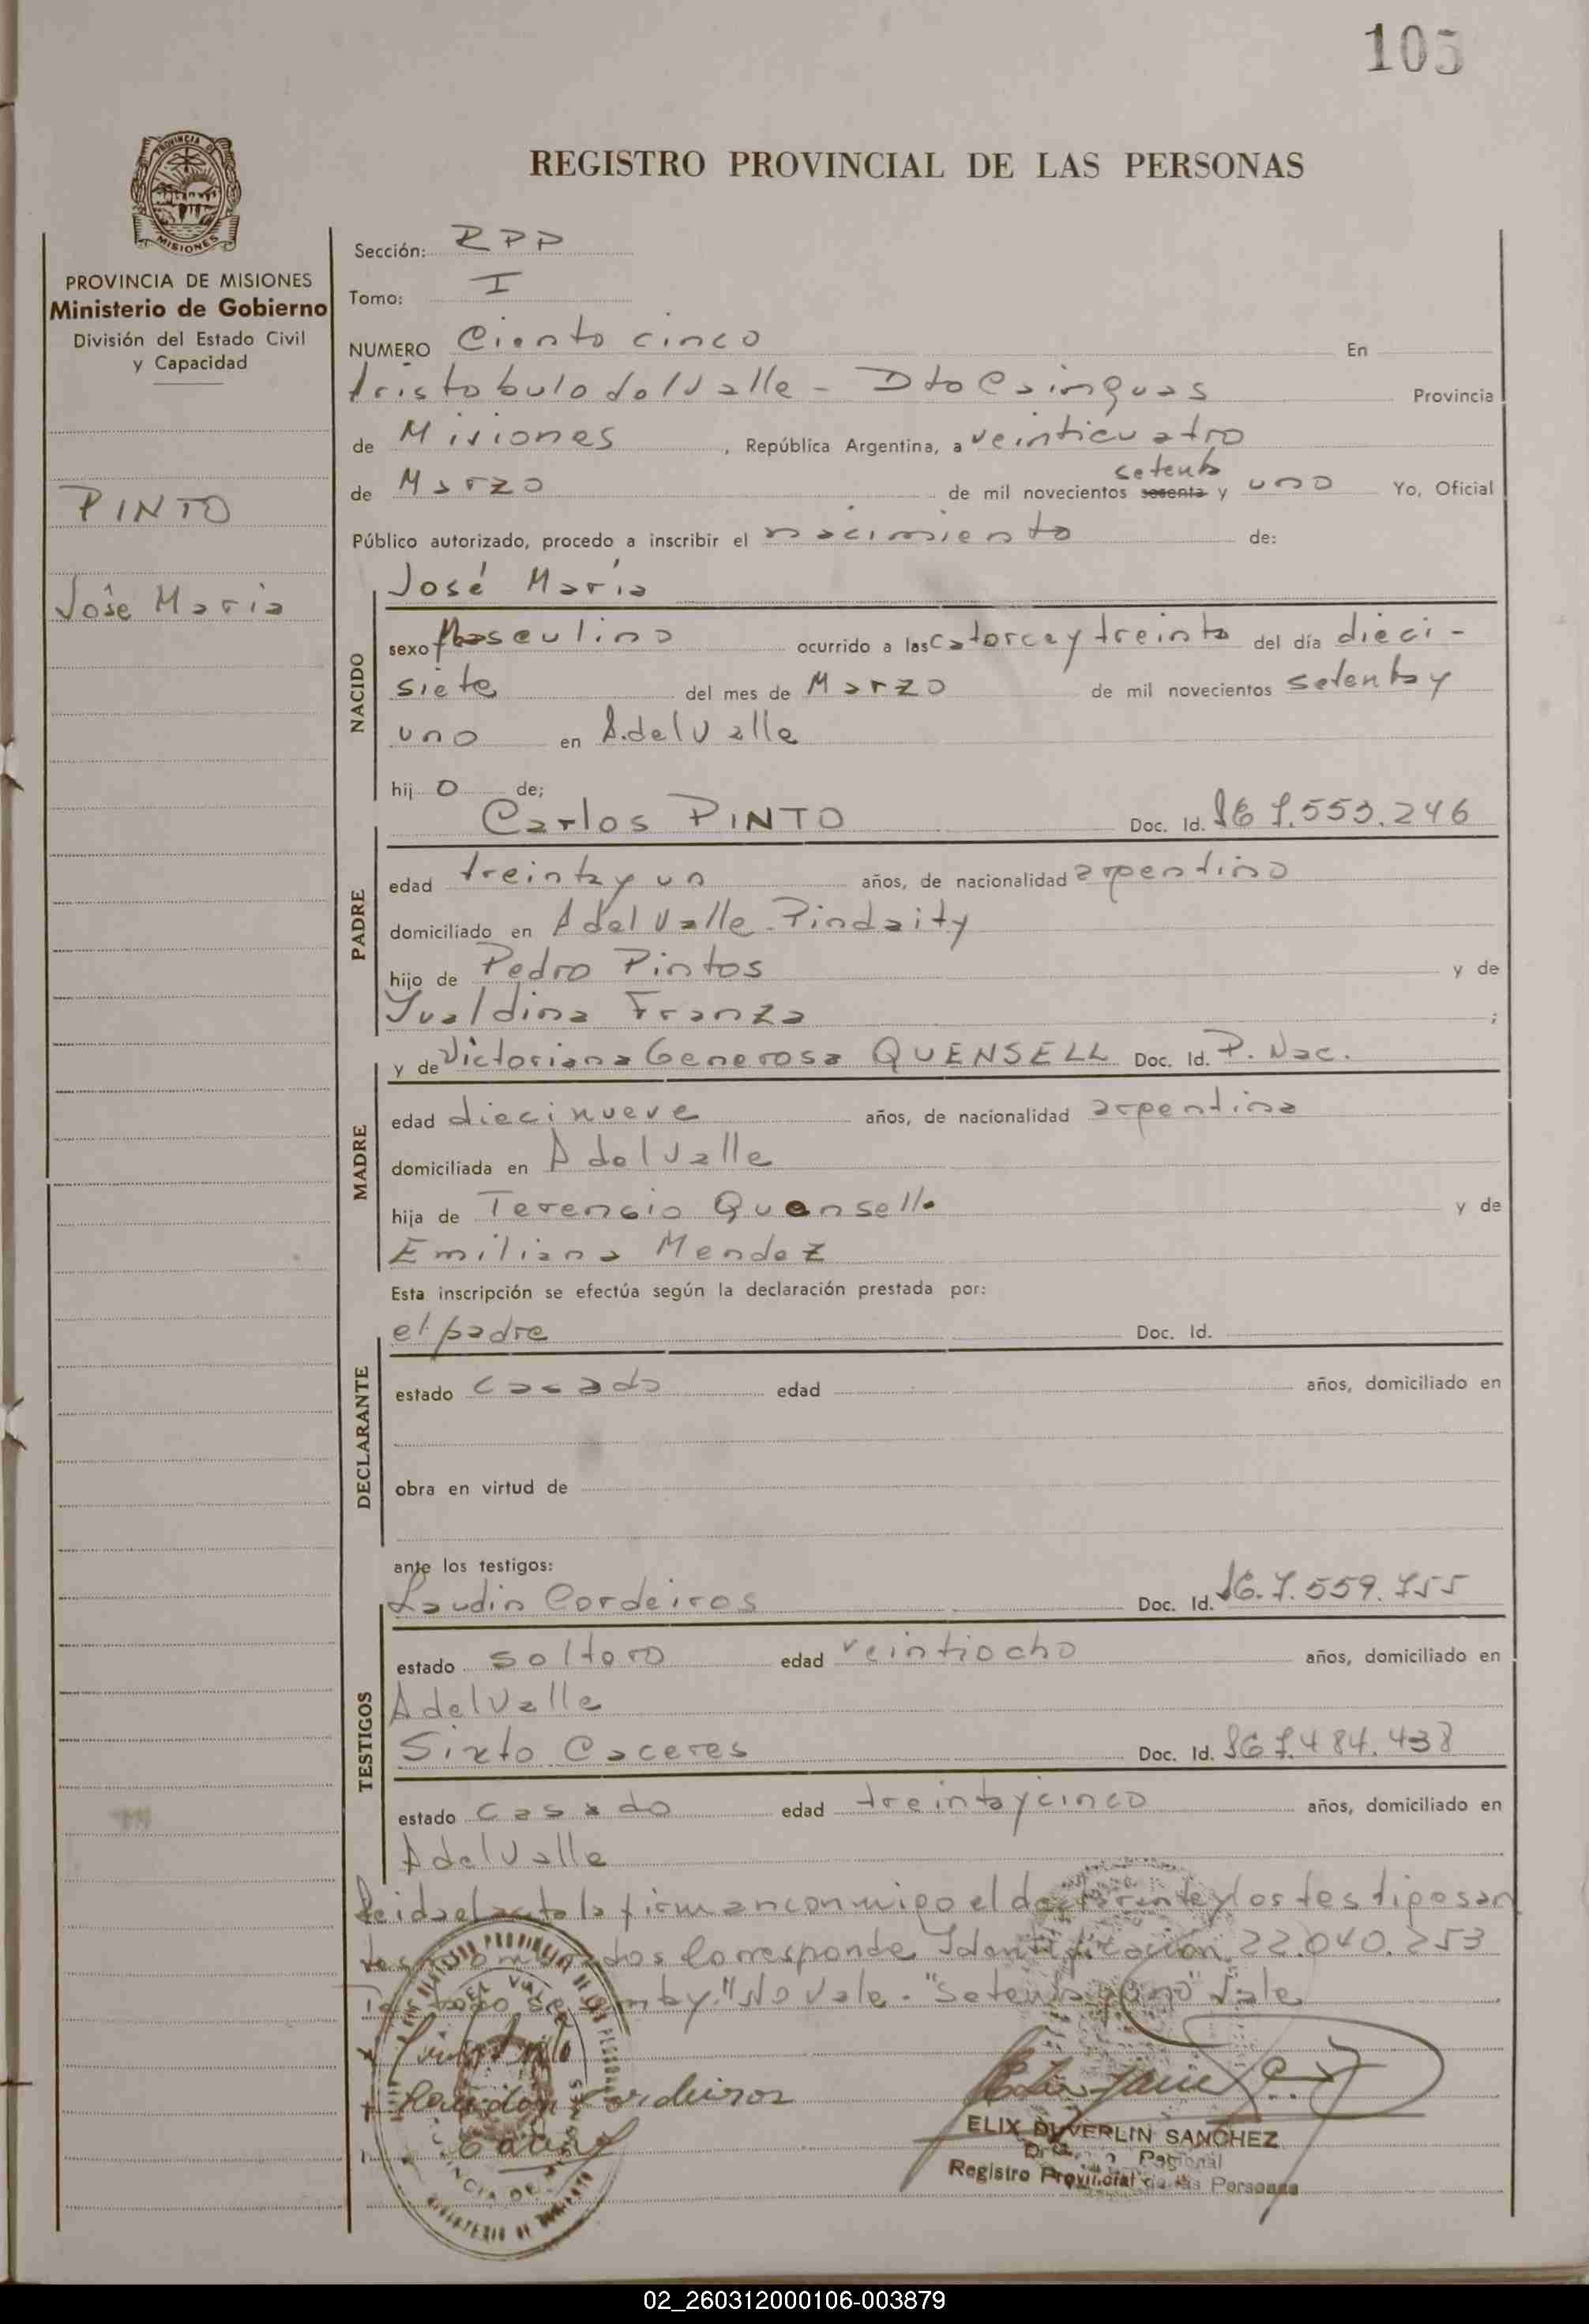 105
REGISTRO PROVINCIAL DE LAS PERSONAS
PROVINCIA DE MISIONES
PROVINCIA DE MISIONES
Ministerio de Gobierno
División del Estado Civil
y Capacidad
PINTO
José Maria
Sección: RPP
Tomo: I
NUMERO Ciento cinco En
Aristobulo del Valle - Dto Cainguas Provincia
de Misiones, República Argentina, a veinticuatro
setenta
de Marzo de mil novecientos sesenta y uno Yo, Oficial
Público autorizado, procedo a inscribir el nacimiento de:
NACIDO
José María
sexo Masculino ocurrido a las catorce y treinta del día dieci-
siete del mes de Marzo de mil novecientos setenta y
uno en A. del Valle
hijo de;
PADRE
Carlos PINTO Doc. Id. 7.553.246
edad treinta y un años, de nacionalidad argentino
domiciliado en A del Valle - Pindaity
hijo de Pedro Pintos y de
Franza ;
MADRE
y de Victoriana Generosa QUENSELL Doc. Id. P. Nac.
edad diecinueve años, de nacionalidad argentina
domiciliada en A del Valle
hija de Terencio Quensell y de
Emiliana Mendez
Esta inscripción se efectúa según la declaración prestada por:
DECLARANTE
el padre Doc. Id.
estado casado edad años, domiciliado en
obra en virtud de
ante los testigos:
TESTIGOS
Laudin Cordeiros Doc. Id. 7.559.755
estado soltero edad veintiocho años, domiciliado en
A del Valle
Sixto Caceres Doc. Id. 7.484.438
estado casado edad treinta y cinco años, domiciliado en
A del Valle
Leida el acta la firman conmigo el declarante y los testigos an
tes nombrados Corresponde Identificación 22.040.253
"No Vale - "Setenta y uno" Vale
Cordeiros
ELIX DUVERLIN SANCHEZ
Regional
Registro Provincial de las Personas
02_260312000106-003879